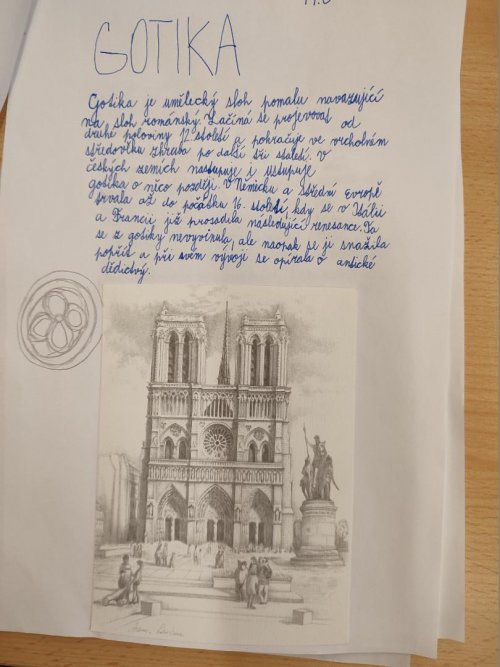 GOTIKA
Gotika je umělecký sloh pomalu navazující
na sloh románský. Začíná se projevovat od
druhé poloviny 12. století a pokračuje ve vrcholném
středověku zhruba po další tři století. V
českých zemích nastupuje i ustupuje
gotika o něco později. V Německu a střední Evropě
trvala až do počátku 16. století, kdy se v Itálii
a Francii již prosadila následující renesance. Ta
se z gotiky nevyvinula, ale naopak se ji snažila
popřít a při svém vývoji se opírala o antické
dědictví.